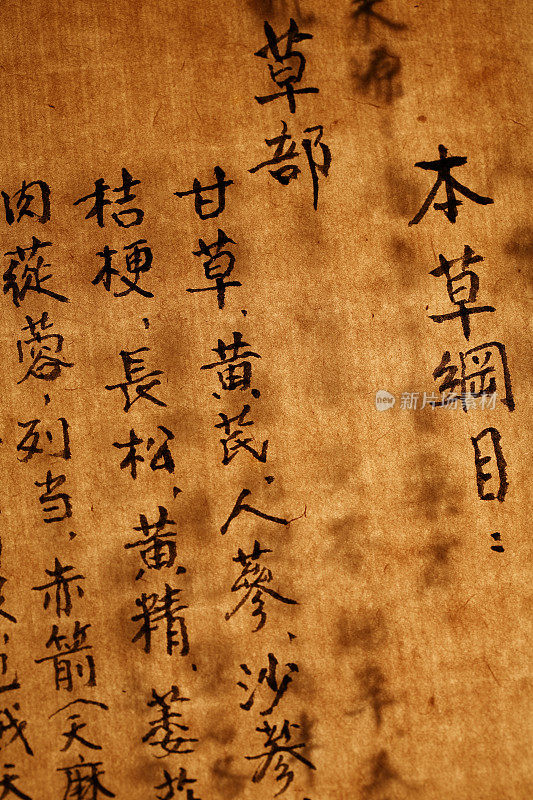 本草綱目:
草部
甘草、黄芪、人蔘、沙蔘
桔梗，長松、黄精、萎
肉蓰蓉，列当、赤箭（天麻
新片场 iStock